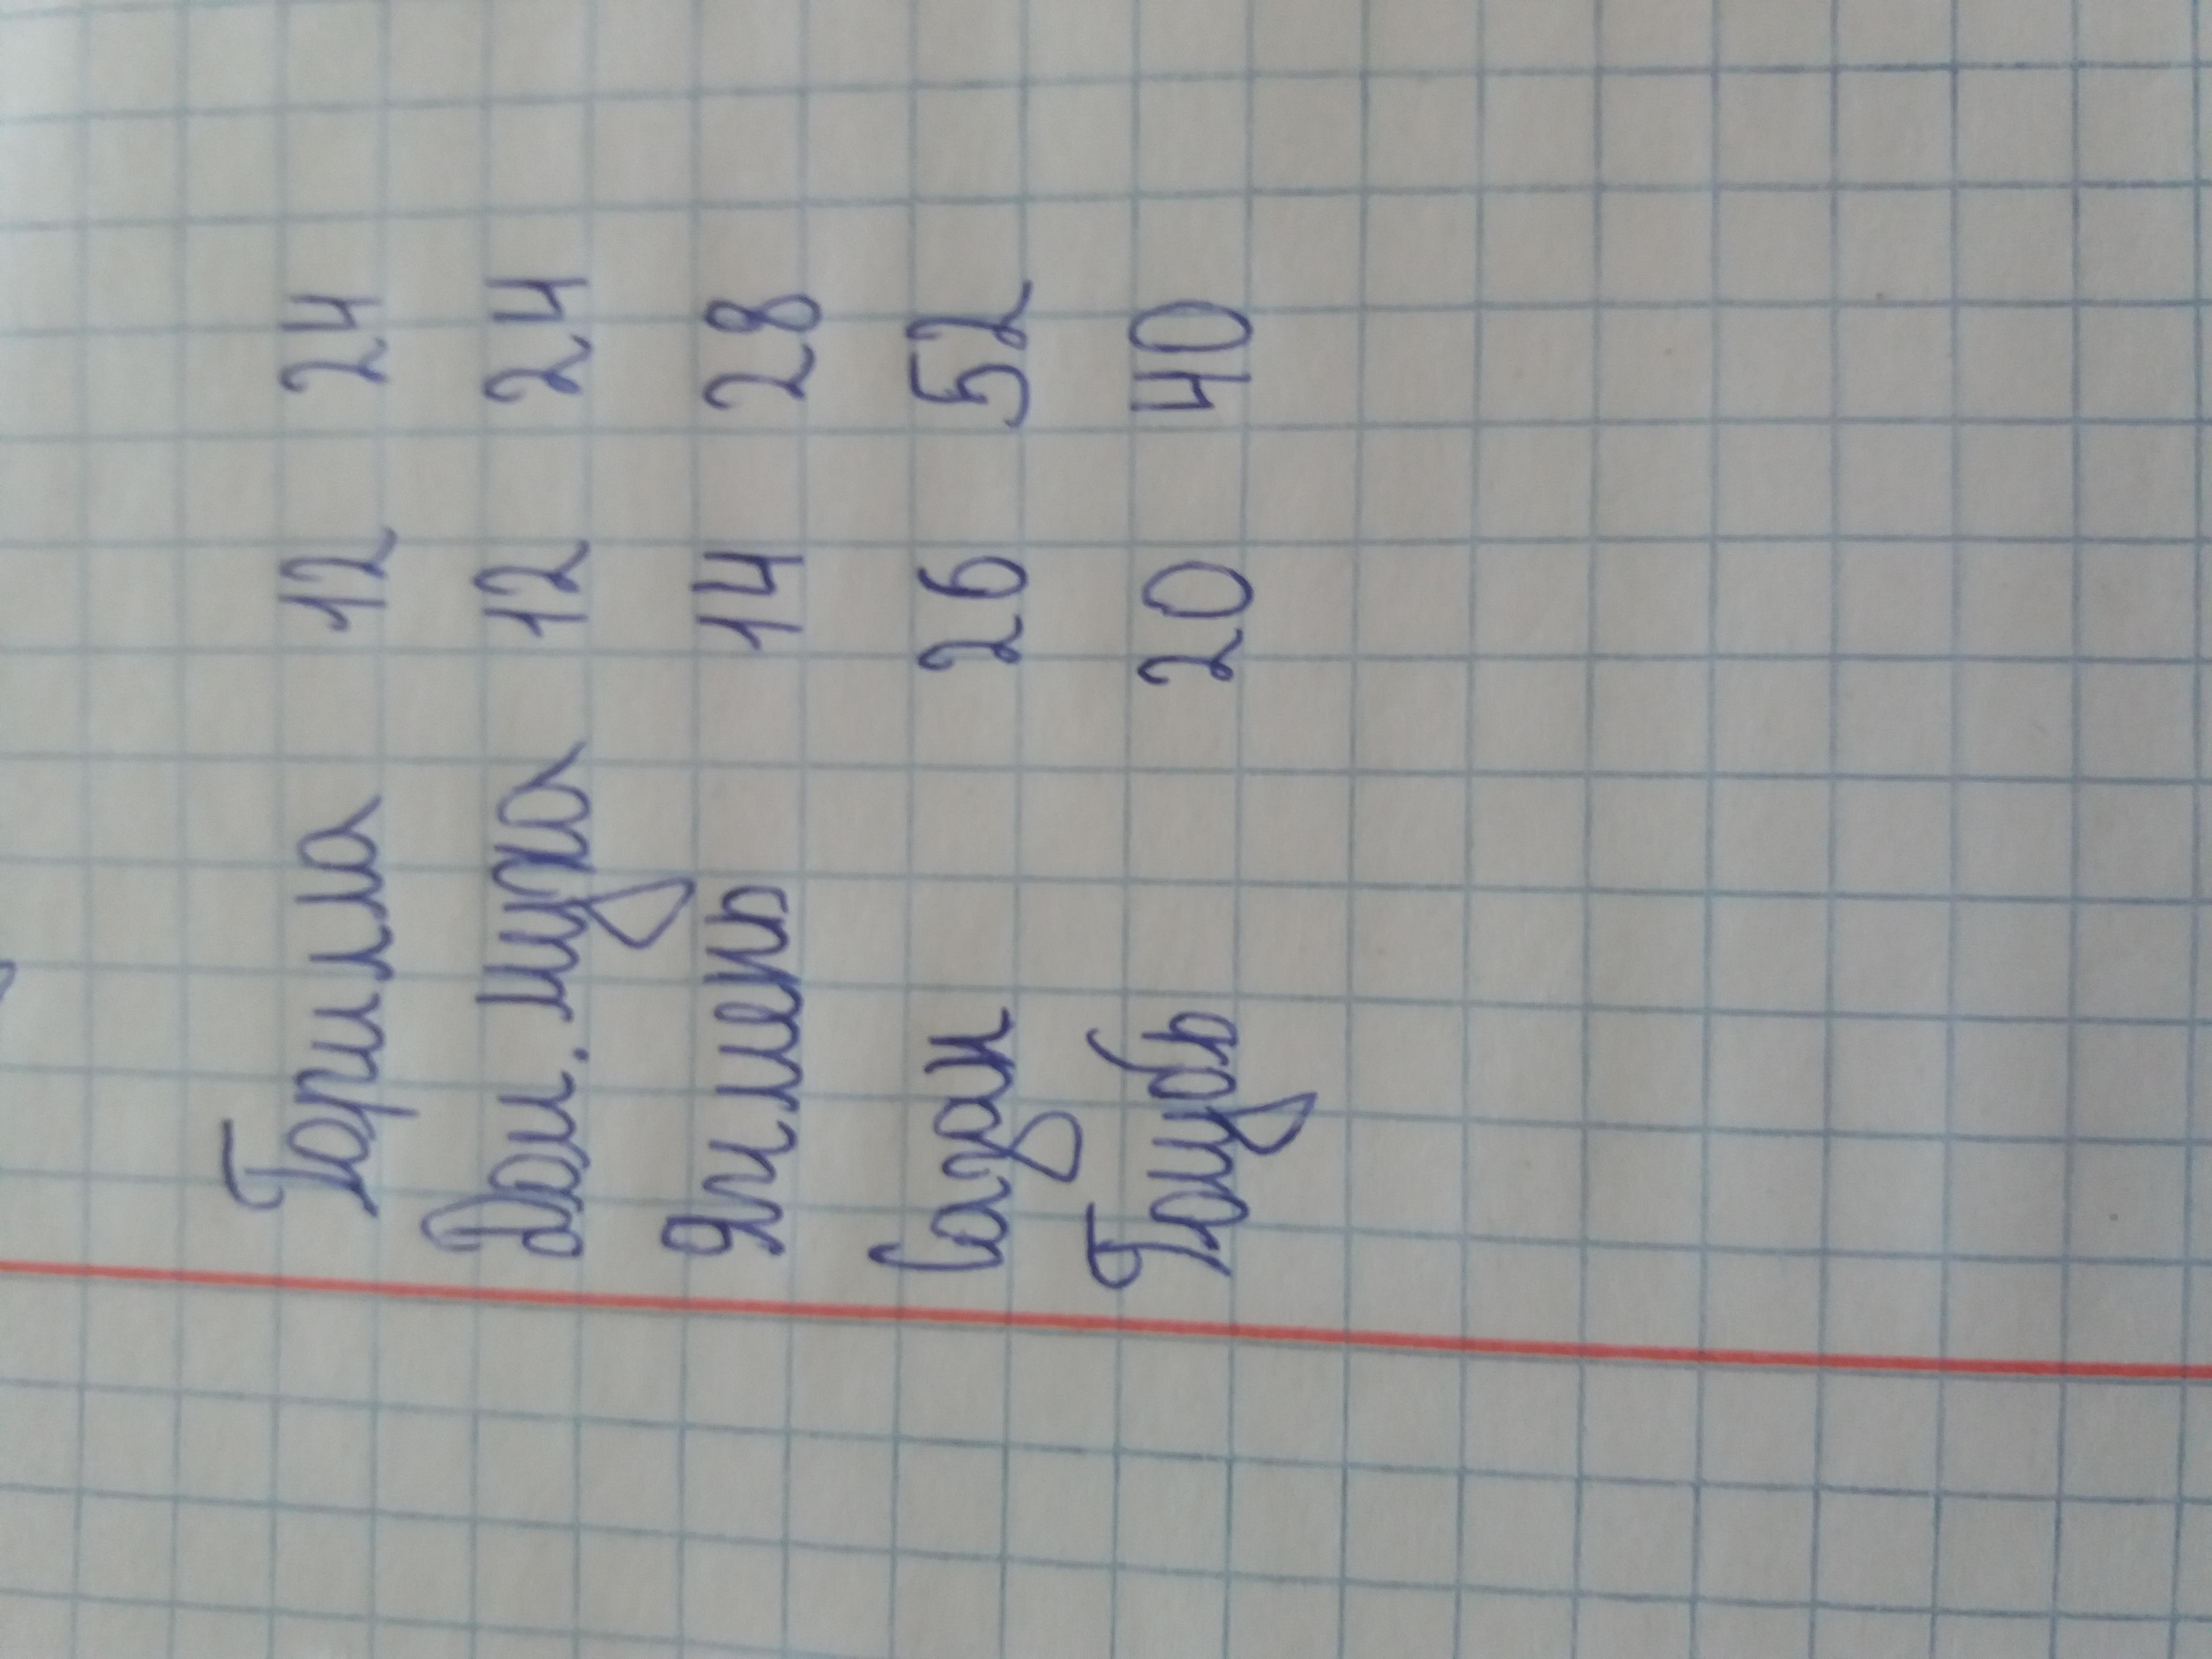 Горилла 12 24
Дом. муха 12 24
Ячмень 14 28
Сазан 26 52
Голубь 20 40